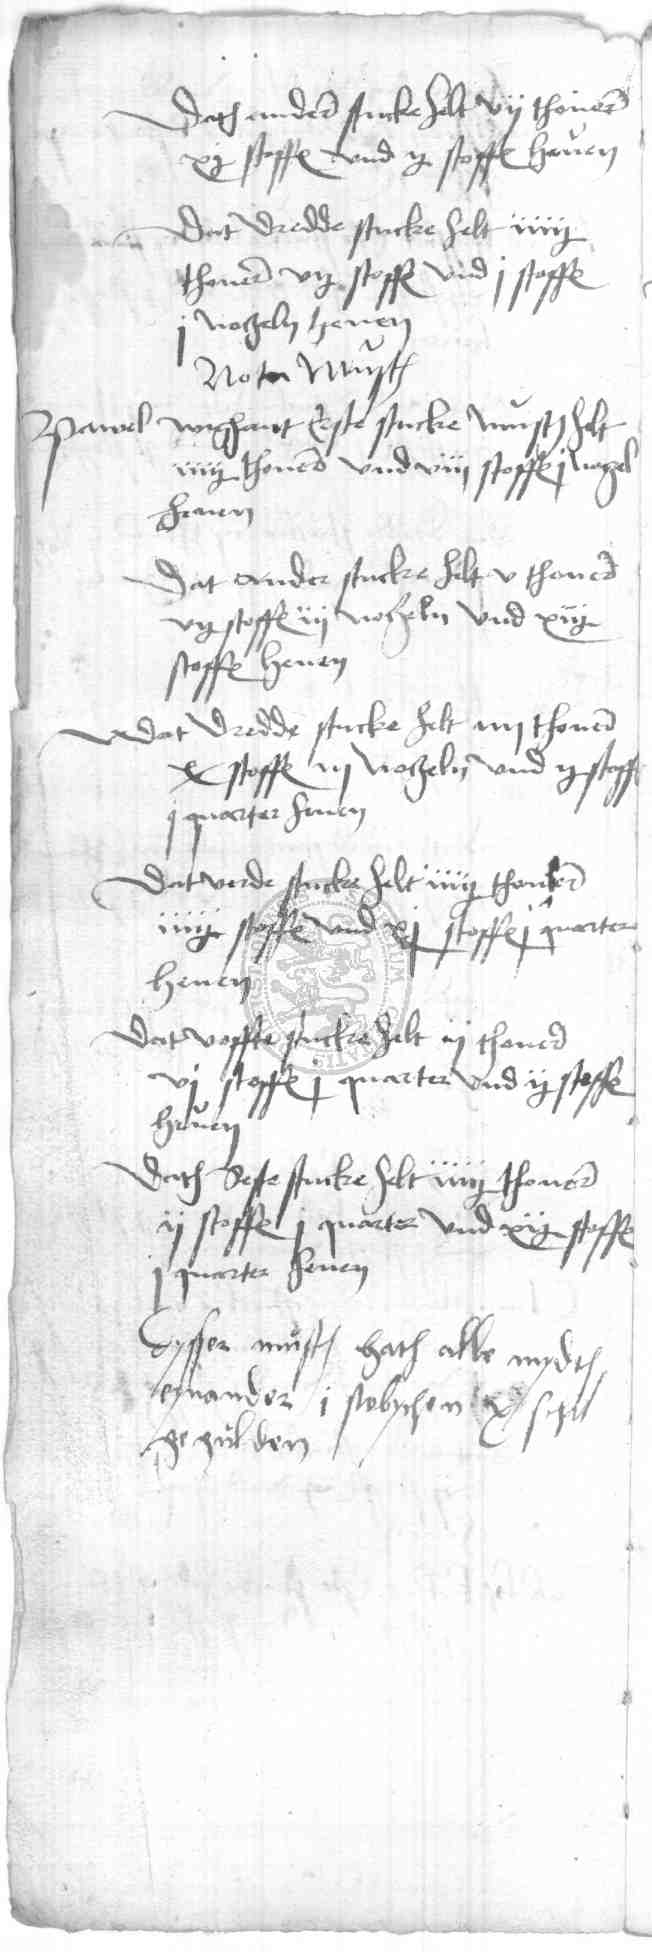 Dath ander stucke helt vij thouer
xj stoffe vnd ij stoffe heuen
Dat dredde stucke helt iiiij
thouer vij stoffe vnd j stoffe
j nozeln heuen
Nota Musth
Pawel wyhant erste stucke musth helt
iiiij thouer vnd viij stoffe j nozel
heuen
Dat ander stucke helt v thouer
vij stoffe iij nozeln vnd xiij
stoffe heuen
dat dredde stucke helt iiij thouer
x stoffe iij nozeln vnd ij stoffe
j quarter heuen
Dat verde stucke helt iiiij thouer
iiiij stoffe vnd xj stoffe j quarter
heuen
dat voffte stucke helt iij thouer
vj stoffe j quarter vnd ij stoffe
heuen
dath Seste stucke helt iiiij thouer
ij stoffe j quarter vnd xij stoffe
j quarter heuen
Dysser musth hath alle mydth
eynander j stobychen x
gegulden